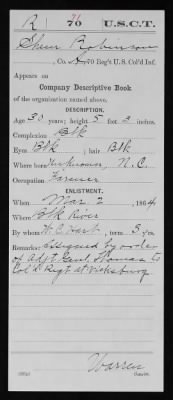 R | 70 | U.S.C.T.
Robinson
, Co. , 70 Reg't U. S. Col'd Inf.
Appears on
Company Descriptive Book
of the organization named above.
DESCRIPTION.
Age 30 years; height 5 feet 2 inches.
Complexion Blk
Eyes Blk ; hair Blk
Where born , N. C.
Occupation Farmer
ENLISTMENT.
When Mar. 2 , 1864
Where Blk River
By whom W. C. Hart ; term 3 y'rs.
Remarks: Assigned by order
of Adjt. Genl Thomas to
Col'd Regt at Vicksburg
Warren
Copyist.